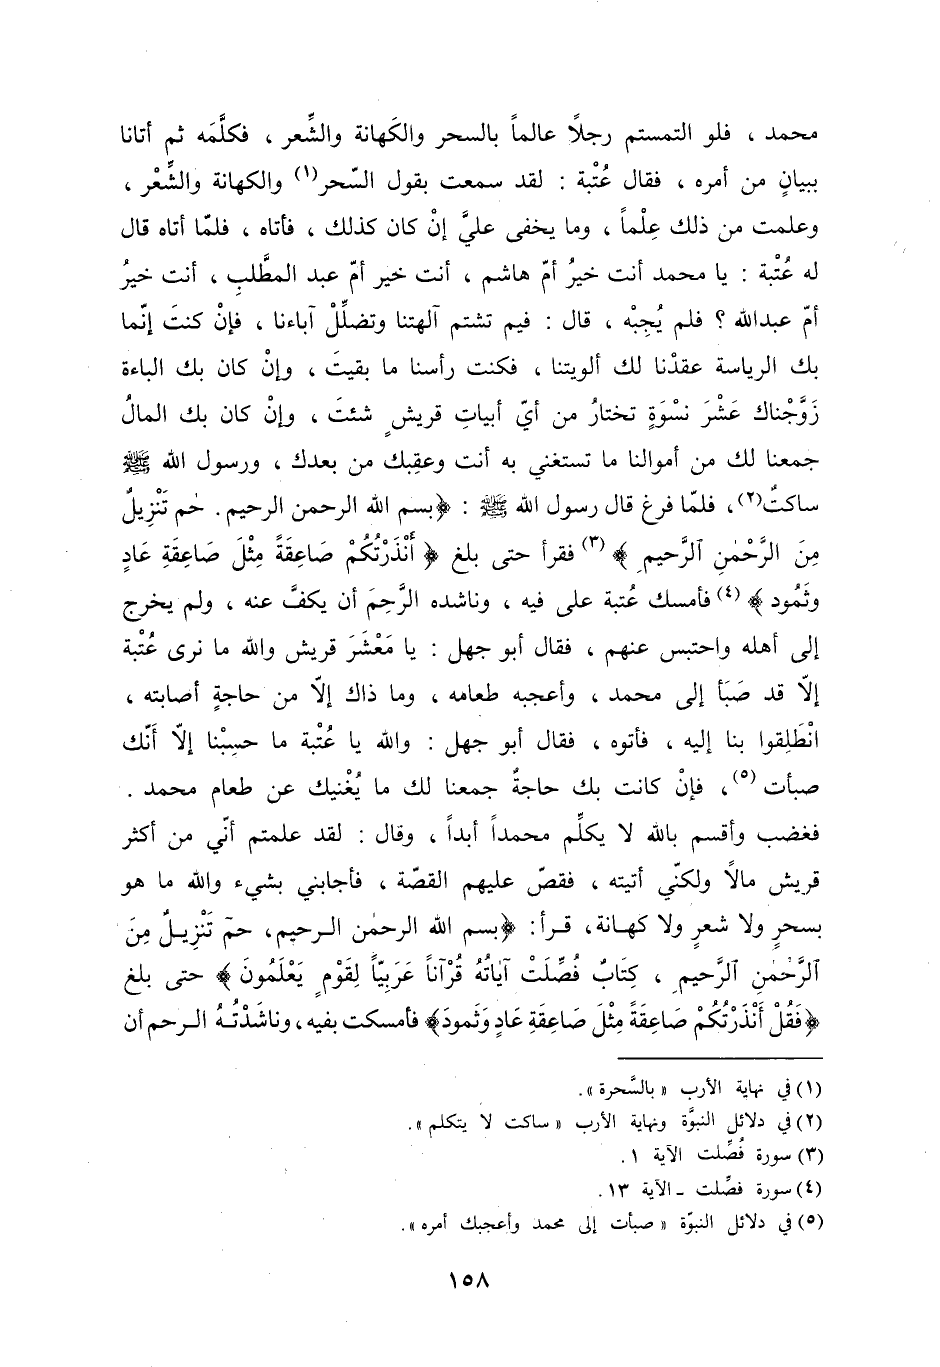 محمد ، فلو التمستم رجلًا عالماً بالسحر والكَهانة والشِّعر ، فكلَّمَه ثم أتانا
ببيانٍ من أمره ، فقال عُتْبة : لقد سمعت بقول السّحر(١) والكهانة والشِّعْر ،
وعلمت من ذلك عِلْماً ، وما يخفى عليَّ إنْ كان كذلك ، فأتاه ، فلمّا أتاه قال
له عُتْبة : يا محمد أنت خيرُ أمّ هاشم ، أنت خير أمّ عبد المطَّلبِ ، أنت خيرُ
أمّ عبدالله ؟ فلم يُجِبْه ، قال : فيم تشتم آلهتنا وتضلِّلْ آباءنا ، فإنْ كنتَ إنّما
بك الرياسة عقدْنا لك ألويتنا ، فكنت رأسنا ما بقيتَ ، وإنْ كان بك الباءة
زَوَّجْناك عَشْرَ نسْوَةٍ تختارُ من أيّ أبياتِ قريشٍ شئتَ ، وإنْ كان بك المالُ
جمعنا لك من أموالنا ما تستغني به أنت وعقِبك من بعدك ، ورسول الله ﷺ
ساكتٌ(٢)، فلمّا فرغ قال رسول الله ﷺ : ﴿بسم الله الرحمن الرحيم . حٰم تَنْزِيلٌ
مِنَ الرَّحْمٰنِ ٱلرَّحيمِ ﴾(٣) فقرأ حتى بلغ ﴿ أَنْذَرْتُكُمْ صَاعِقَةً مِثْلَ صَاعِقَةِ عَادٍ
وثَمُود ﴾(٤) فأمسك عُتبة على فيه ، وناشده الرَّحِمَ أن يكفَّ عنه ، ولم يخرج
إلى أهله واحتبس عنهم ، فقال أبو جهل : يا مَعْشَرَ قريش والله ما نرى عُتْبة
إلّا قد صَبَأ إلى محمد ، وأعجبه طعامه ، وما ذاك إلّا من حاجةٍ أصابته ،
انْطَلِقوا بنا إليه ، فأتوه ، فقال أبو جهل : والله يا عُتْبة ما حسِبْنا إلّا أَنّك
صبأت(٥)، فإنْ كانت بك حاجةٌ جمعنا لك ما يُغْنيك عن طعام محمد .
فغضب وأقسم بالله لا يكلِّم محمداً أبداً ، وقال : لقد علمتم أنّي من أكثر
قريش مالًا ولكنّي أتيته ، فقصّ عليهم القصّة ، فأجابني بشيء والله ما هو
بسحرٍ ولا شعرٍ ولا كهـانة، قـرأ: ﴿بسم الله الرحمٰن الـرحيم، حمٓ تَنْزِيـلٌ مِنَ
ٱلرَّحْمٰنِ ٱلرَّحيمِ ، كِتَابٌ فُصِّلَتْ آيَاتُهُ قُرْآناً عَرَبِيّاً لِقَوْمٍ يَعْلَمُونَ﴾ حتى بلغ
﴿فَقُلْ أَنْذَرْتُكُمْ صَاعِقَةً مِثْلَ صَاعِقَةِ عَادٍ وَثَمودَ﴾ فأمسكت بفيه، وناشَدْتُـهُ الـرحم أن
(١) في نهاية الأرب « بالسَّحرة ».
(٢) في دلائل النبوَّة ونهاية الأرب « ساكت لا يتكلم ».
(٣) سورة فُصِّلت الآية ١ .
(٤) سورة فصِّلت ـ الآية ١٣ .
(٥) في دلائل النبوّة « صبأت إلى محمد وأعجبك أمره ».
١٥٨